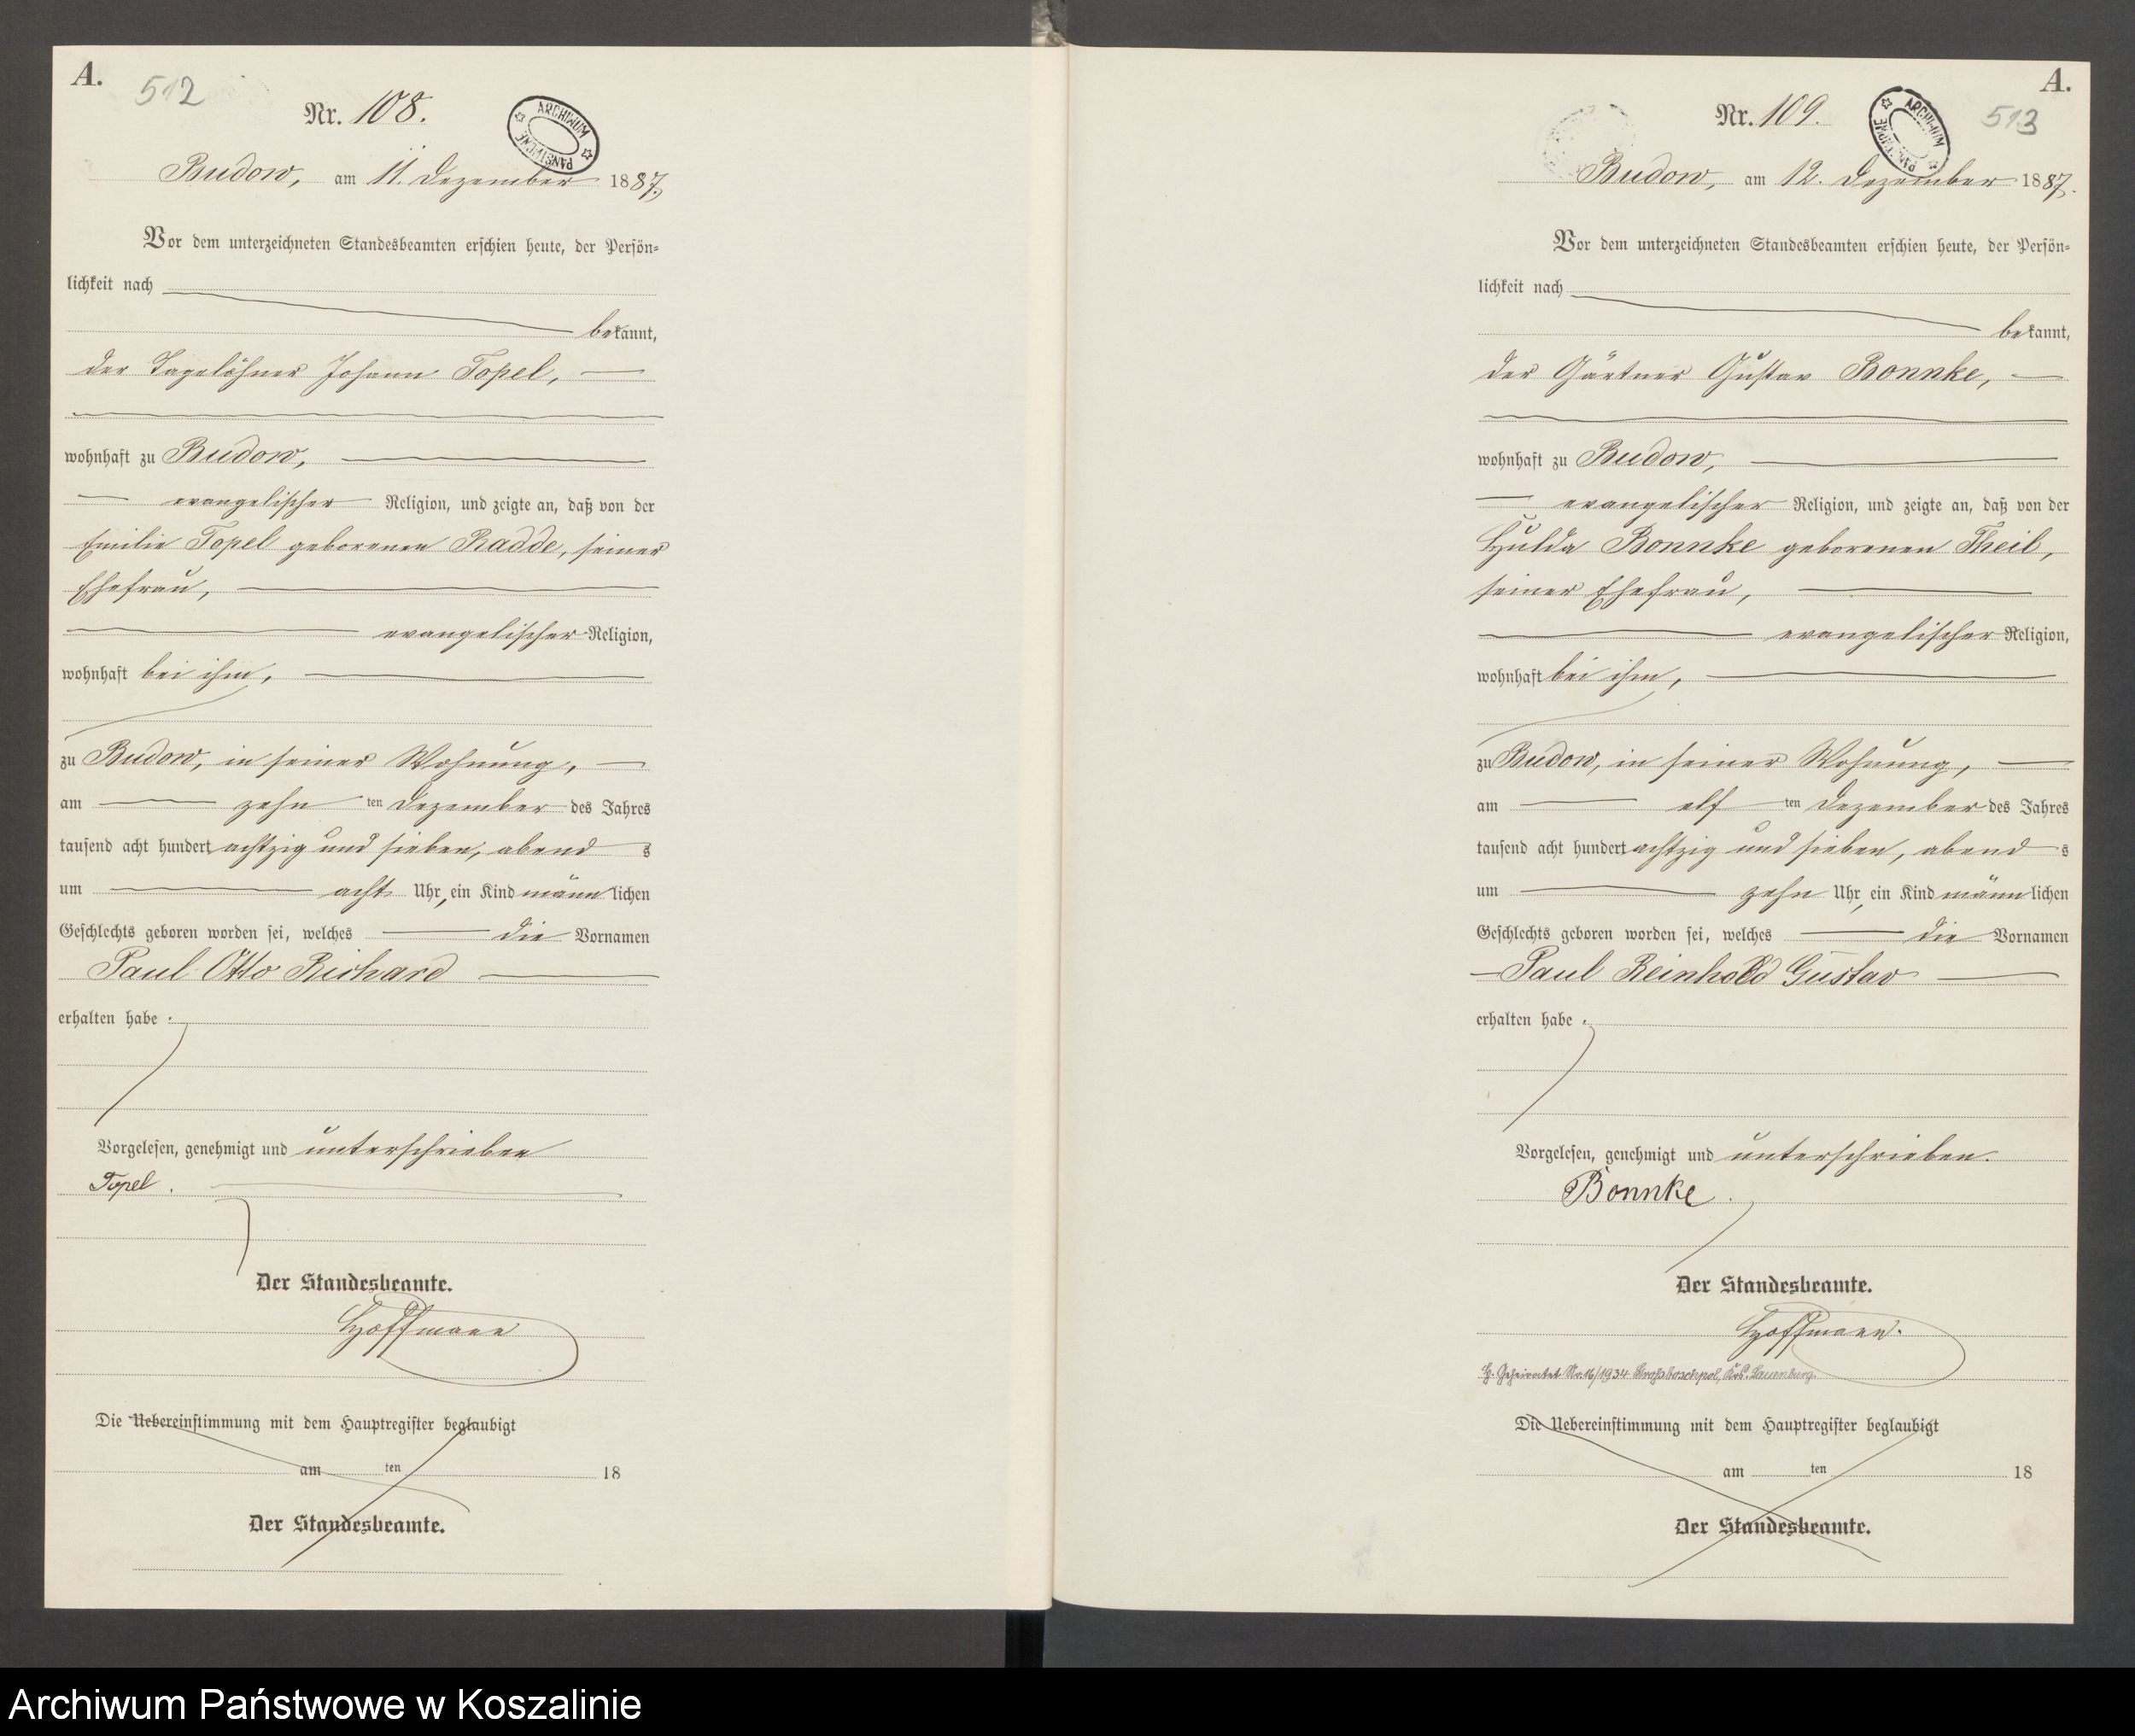 A.
512
Nr. 108.
ARCHIWUM PAŃSTWOWE
Budow, am 11. Dezember 1887.
Vor dem unterzeichneten Standesbeamten erschien heute, der Persön-
lichkeit nach
bekannt,
der Tagelöhner Johann Topel,
wohnhaft zu Budow,
evangelischer Religion, und zeigte an, daß von der
Emilie Topel geborenen Radde, seiner
Ehefrau,
evangelischer Religion,
wohnhaft bei ihm,
zu Budow, in seiner Wohnung,
am zehn ten Dezember des Jahres
tausend acht hundert achtzig und sieben, abend s
um acht Uhr, ein Kind männlichen
Geschlechts geboren worden sei, welches die Vornamen
Paul Otto Richard
erhalten habe.
Vorgelesen, genehmigt und unterschrieben
Topel.
Der Standesbeamte.
Hoffmann
Die Uebereinstimmung mit dem Hauptregister beglaubigt
am ten 18
Der Standesbeamte.
A.
513
Nr. 109.
ARCHIWUM PAŃSTWOWE
Budow, am 12. Dezember 1887.
Vor dem unterzeichneten Standesbeamten erschien heute, der Persön-
lichkeit nach
bekannt,
der Gärtner Gustav Bonnke,
wohnhaft zu Budow,
evangelischer Religion, und zeigte an, daß von der
Hulda Bonnke geborenen Theil,
seiner Ehefrau,
evangelischer Religion,
wohnhaft bei ihm,
zu Budow, in seiner Wohnung,
am elf ten Dezember des Jahres
tausend acht hundert achtzig und sieben, abend s
um zehn Uhr, ein Kind männlichen
Geschlechts geboren worden sei, welches die Vornamen
Paul Reinhold Gustav
erhalten habe.
Vorgelesen, genehmigt und unterschrieben.
Bonnke.
Der Standesbeamte.
Hoffmann.
Geheiratet Nr. 16/1934 Großboschpol, Krs. Lauenburg.
Die Uebereinstimmung mit dem Hauptregister beglaubigt
am ten 18
Der Standesbeamte.
Archiwum Państwowe w Koszalinie